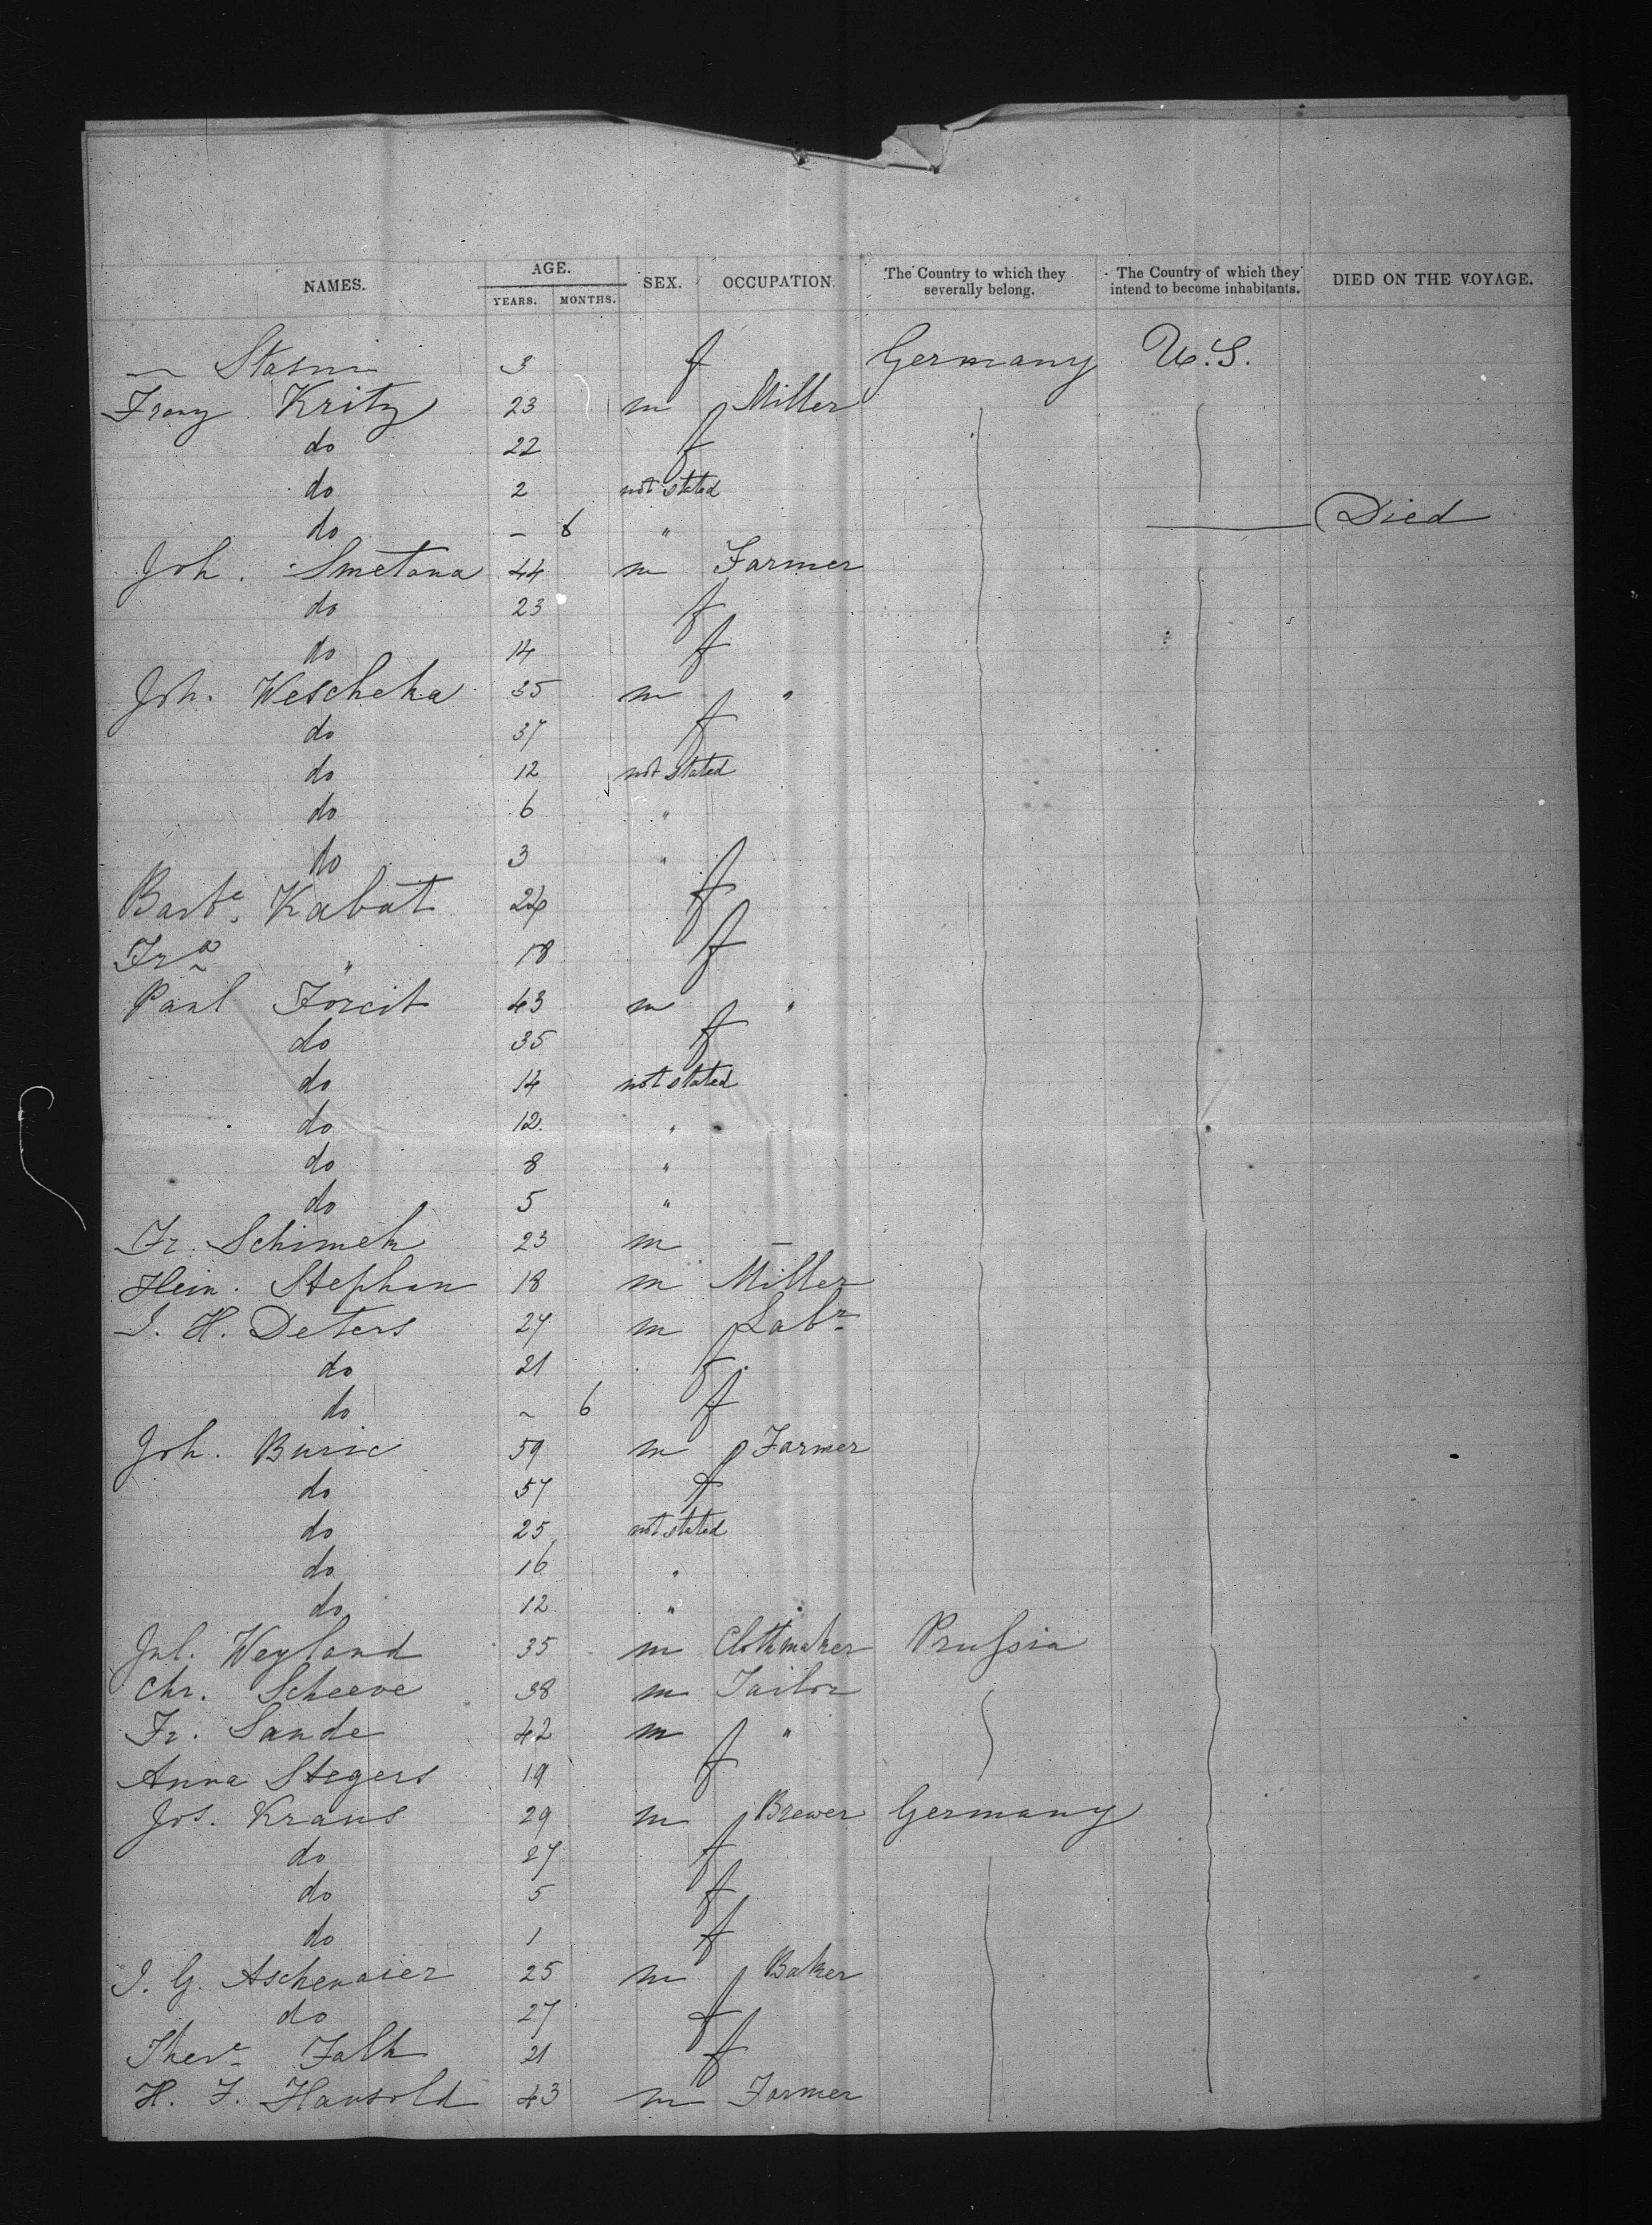 NAMES. AGE. YEARS. MONTHS. SEX. OCCUPATION. The Country to which they severally belong. The Country of which they intend to become inhabitants. DIED ON THE VOYAGE.
— 3 f Germany U.S.
Franz Kritz 23 m Miller
do 22 f
do 2 not stated
do – 6 " Died
Joh. Smetana 44 m Farmer
do 23 f
do 14 f
Joh. Wescheka 35 m "
do 37 f
do 12 not stated
do 6 "
do 3 "
Barbe. Kabat 24 f
Fra " 18 f
Paul 43 m "
do 35 f
do 14 not stated
do 12 "
do 8 "
do 5 "
Fr. Schimek 23 m –
Hein. Stephan 18 m Miller
J. H. Deters 27 m Labr
do 21 f
do ~ 6 f
Joh. Buric 59 m Farmer
do 57 f
do 25 not stated
do 16 "
do 12 "
Jul. Weyland 35 m Clothmaker Prussia
Chr. Scheeve 38 m Tailor
Fr. Sande 42 m "
Anna Stegers 19 f
Jos. Kraus 29 m Brewer Germany
do 27 f
do 5 f
do 1 f
J. G. Aschenaier 25 m Baker
do 27 f
There Falk 21 f
H. F. Hausold 43 m Farmer